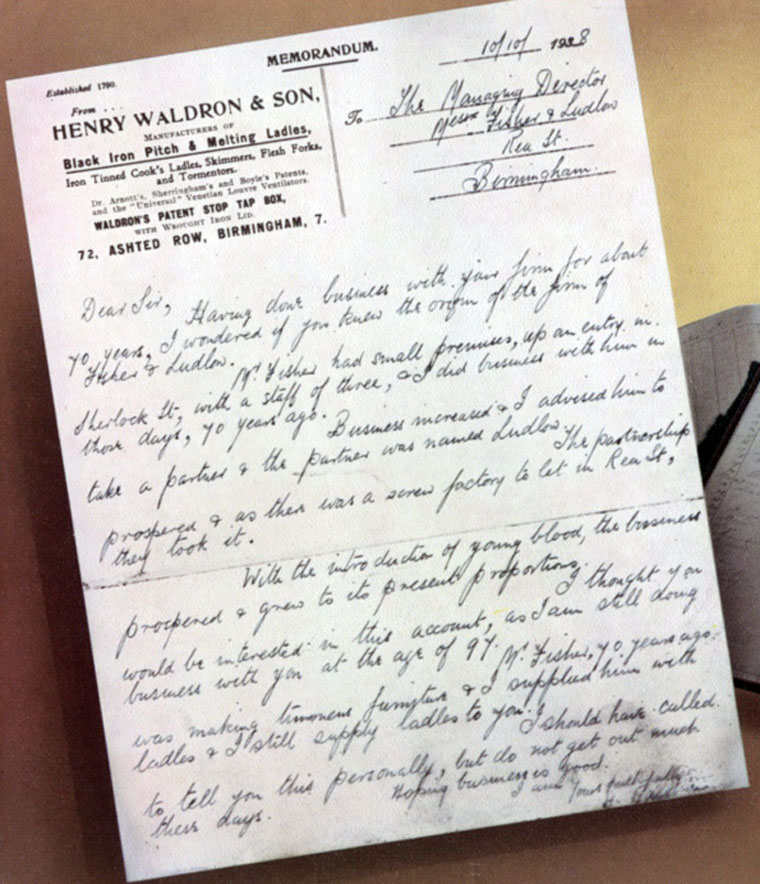 MEMORANDUM.
10/10/ 1938
Established 1790.
From . . .
HENRY WALDRON & SON,
MANUFACTURERS OF
Black Iron Pitch & Melting Ladles,
Iron Tinned Cook's Ladles, Skimmers, Flesh Forks,
and Tormentors.
Dr. Arnott's, Sherringham's and Boyle's Patents,
and the "Universal" Venetian Louvre Ventilators.
WALDRON'S PATENT STOP TAP BOX,
WITH WROUGHT IRON LID.
72, ASHTED ROW, BIRMINGHAM, 7.
To The Managing Director
Messrs Fisher & Ludlow
Rea St.
Birmingham.
Dear Sir, Having done business with your firm for about
70 years, I wondered if you knew the origin of the firm of
Fisher & Ludlow.
Mr. Fisher had small premises, up an entry in
Sherlock St, with a staff of three, & I did business with him in
those days, 70 years ago.
Business increased & I advised him to
take a partner & the partner was named Ludlow. The partnership
prospered & as there was a screw factory to let in Rea St,
they took it.
With the introduction of young blood, the bussiness
prospered & grew to its present proportions.
I thought you
would be interested in this account, as I am still doing
business with you at the age of 97. Mr. Fisher, 70 years ago
was making furniture & I supplied him with
ladles & I still supply ladles to you. I should have called
to tell you this personally, but do not get out much
these days.
Hoping business is good.
I am Yours faithfully